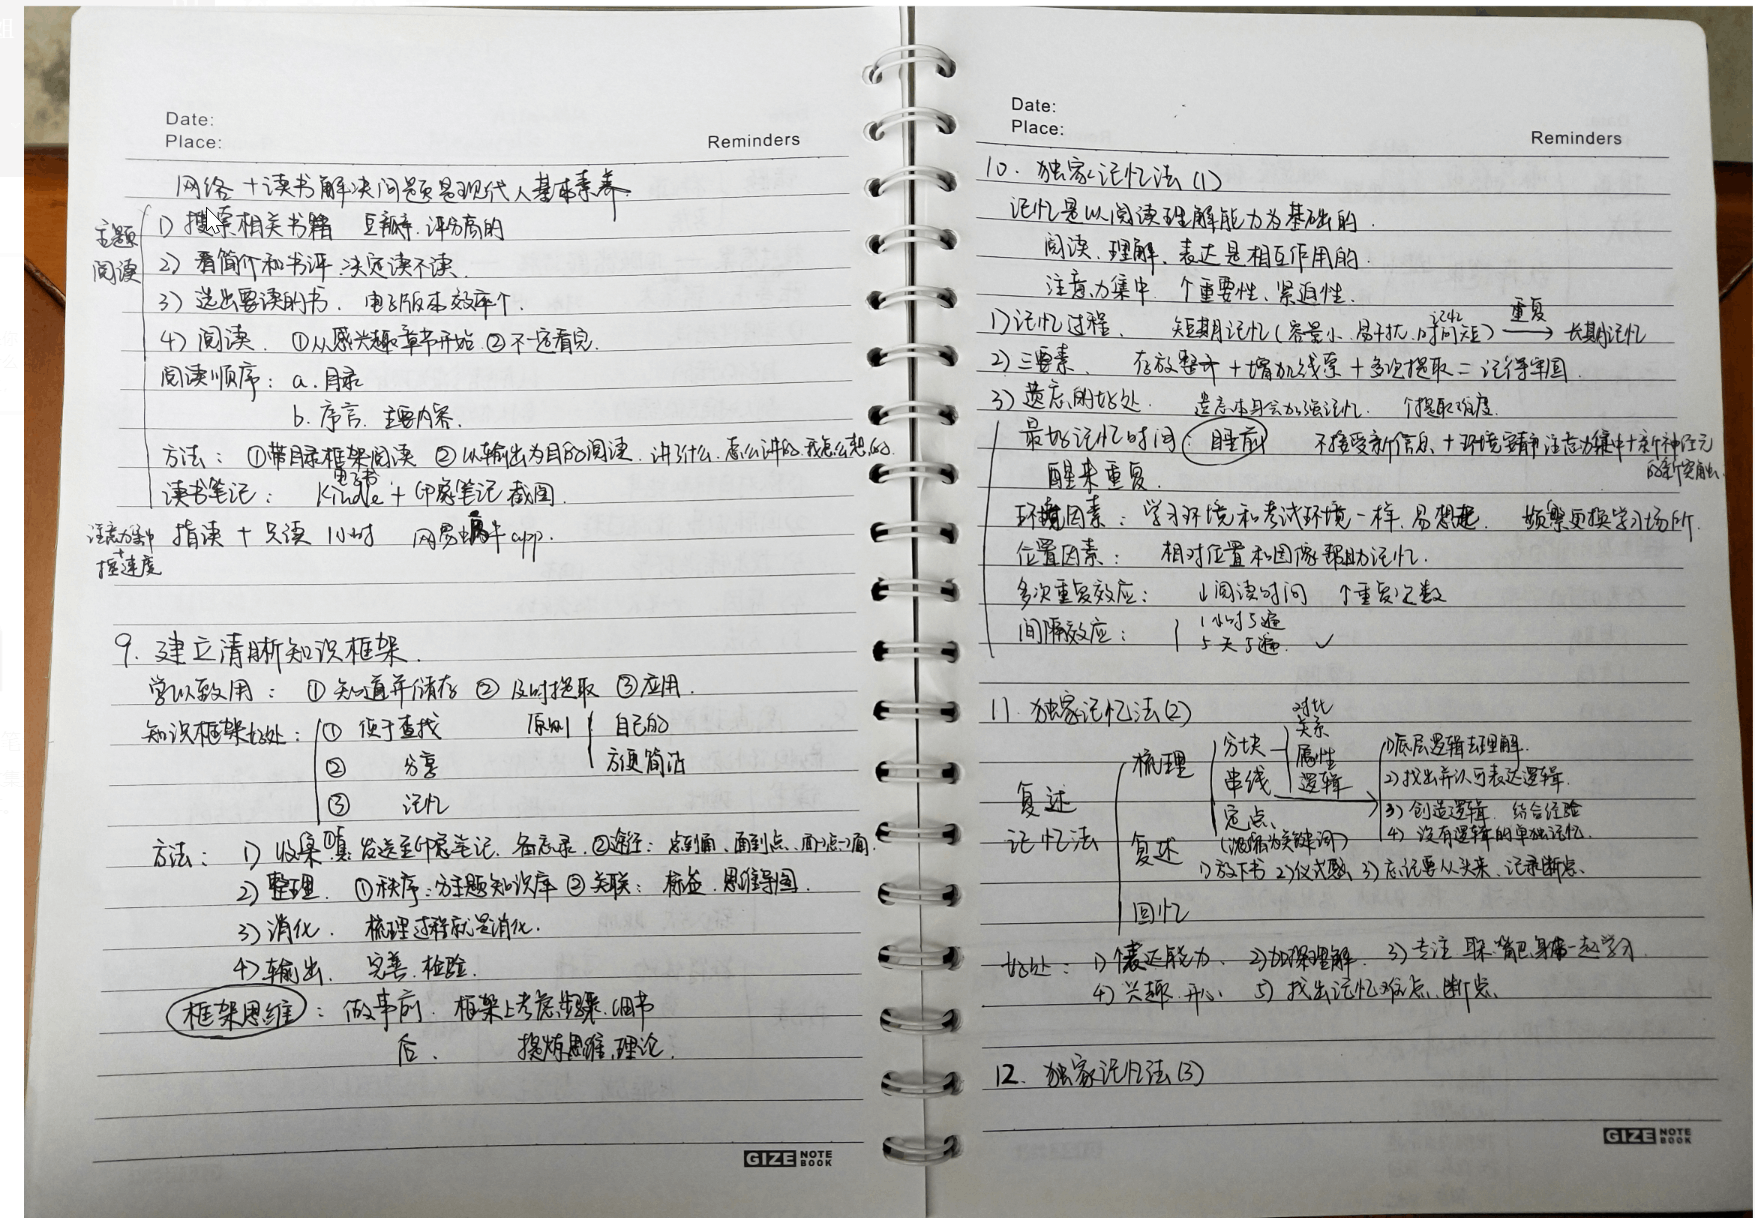 Date:
Place:
Reminders
网络+读书解决问题是现代人基本素养.
主题
阅读
1) 搜索相关书籍 豆瓣 评分高的
2) 看简介和书评 决定读不读.
3) 选出要读的书. 电子版本效率↑.
4) 阅读. ①从感兴趣章节开始 ②不一定看完.
阅读顺序: a. 目录
b. 序言. 主要内容.
方法: ①带目录框架阅读 ②以输出为目的阅读. 讲了什么. 怎么讲的. 我怎么想的.
电子书
读书笔记: Kindle + 印象笔记 截图.
注意力集中
+
提速度
指读 + 只读 1小时 网易蜗牛 app.
9. 建立清晰知识框架.
学以致用: ①知道并储存 ②及时提取 ③应用.
知识框架好处: ①便于查找 原则 自己的
② 分享 方便简洁
③ 记忆
方法: 1) 收集 ① 发送至印象笔记. 备忘录. ②途径: 点到面、面到点、面→点→面.
2) 整理. ①秩序: 分主题知识库 ②关联: 标签. 思维导图.
3) 消化. 梳理过程就是消化.
4) 输出. 完善. 检验.
框架思维: 做事前. 框架上考虑步骤.
后. 提炼思维. 理论.
GIZE NOTE BOOK
Date:
Place:
Reminders
10. 独家记忆法(1)
记忆是以阅读理解能力为基础的.
阅读、理解、表达是相互作用的.
注意力集中 ↑重要性、紧迫性.
1) 记忆过程. 短期记忆(容量小、易干扰、记忆时间短) 重复→ 长期记忆
2) 三要素. 存放整齐 + 增加线索 + 多次提取 = 记得牢固.
3) 遗忘的好处. 遗忘本身会加强记忆. ↑提取难度.
最好记忆时间: 睡前 不接受新信息 + 环境安静 注意力集中 + 新神经元
的新突触.
醒来重复.
环境因素: 学习环境和考试环境一样. 易想起. 频繁更换学习场所.
位置因素: 相对位置和图像帮助记忆.
多次重复效应: ↓阅读时间 ↑重复次数
间隔效应: 1小时5遍
5天5遍. ✓
11. 独家记忆法(2)
复述
记忆法
梳理
分块
串线
定点.
对比
关系
属性
逻辑
1) 底层逻辑去理解.
2) 找出并认可表达逻辑.
3) 创造逻辑. 结合经验
4) 没有逻辑的单独记忆.
复述
1) 放下书 2) 仪式感 3) 忘记要从头来. 记录断点.
回忆
好处: 1) ↑表达能力. 2) 加深理解. 3) 专注 耳、嘴巴、身体一起学习.
4) 兴趣. 开心. 5) 找出记忆难点、断点.
12. 独家记忆法(3)
GIZE NOTE BOOK